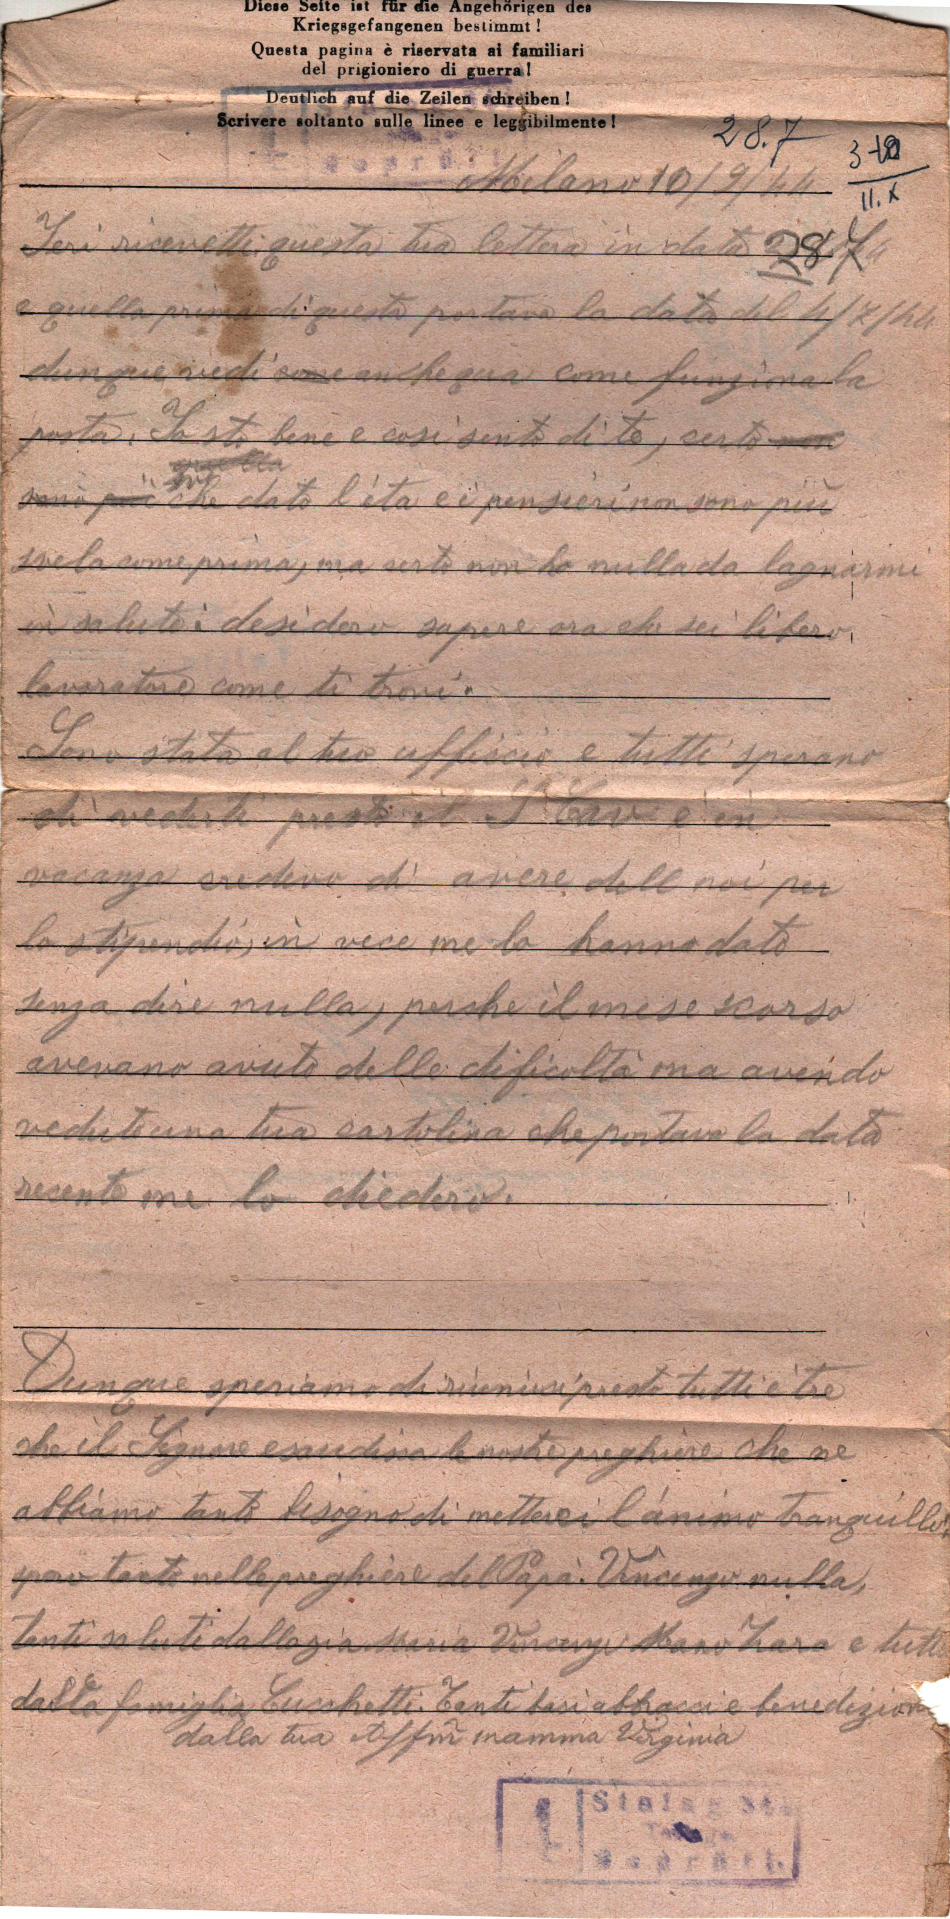 Diese Seite ist für die Angehörigen des
Kriegsgefangenen bestimmt!
Questa pagina è riservata ai familiari
del prigioniero di guerra!
Deutlich auf die Zeilen schreiben!
Scrivere soltanto sulle linee e leggibilmente!
Geprüft
28.7
3-10
11.X
Milano 10/9/44
Ieri ricevetti questa tua lettera in data 28 7
e quella prima di questa portava la data del 4/7/44
dunque vedi come anche qua come funziona la
posta. Io stò bene e così sento di te, certo non
quella
sono più che dato l'éta e i pensieri non sono più
svela come prima, ma certo non ho nulla da lagnarmi
in salute i desidero sapere ora che sei libero
lavoratore come ti trovi.
Sono stata al tuo uffiscio e tutti sperano
di vederti presto il è in
vacanza credevo di avere dell noi per
lo stipendio, in vece me lo hanno dato
senza dire nulla, perche il mese scorso
avevano avuto delle dificoltà ma avendo
veduto una tua cartolina che portava la data
recente me lo diedero.
Dunque speriamo di riunirsi presto tutti e tre
che il Signore esaudira le nostre preghiere che ne
abbiamo tanto bisogno di metterci l'ánimo tranquillo
spero tanto nelle preghiere del Papà. Vincenzo nulla,
tanti saluti dalla zia Maria Vincenzi Zara e tutta
dalla famiglia Cucchetti. Tanti baci abbracci e benedizioni
dalla tua Affm̃ mamma Virginia
Stalag
Geprüft